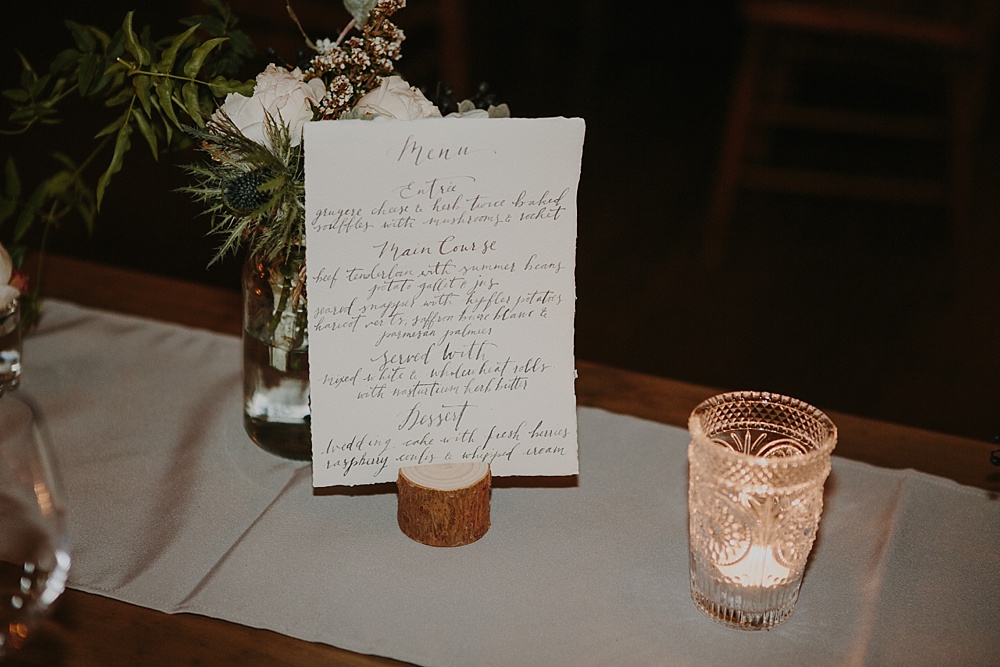 Menu
Entrée
gruyere cheese & herb twice baked
souffles with mushrooms & rocket
Main Course
beef tenderloin with summer beans
potato gallet & jus
seared snapper with kipfler potatoes
haricot verts, saffron burre blanc &
parmesan palmier
Served With
mixed white & wholewheat rolls
with nasturtium herb butter
Dessert
Wedding cake with fresh berries
raspberry coulis & whipped cream